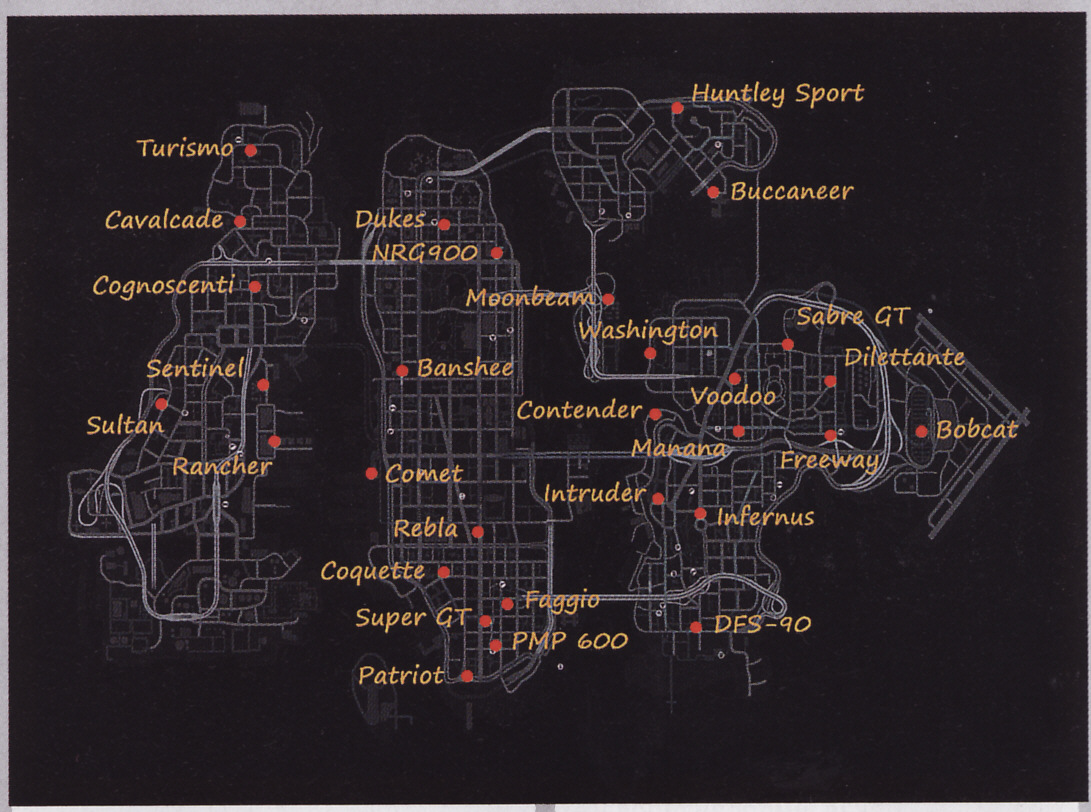 Huntley Sport
Turismo
Buccaneer
Cavalcade
Dukes
NRG900
Cognoscenti
Moonbeam
Sabre GT
Washington
Dilettante
Sentinel
Banshee
Voodoo
Contender
Sultan
Bobcat
Manana
Freeway
Rancher
Comet
Intruder
Infernus
Rebla
Coquette
Faggio
Super GT
DFS-90
PMP 600
Patriot